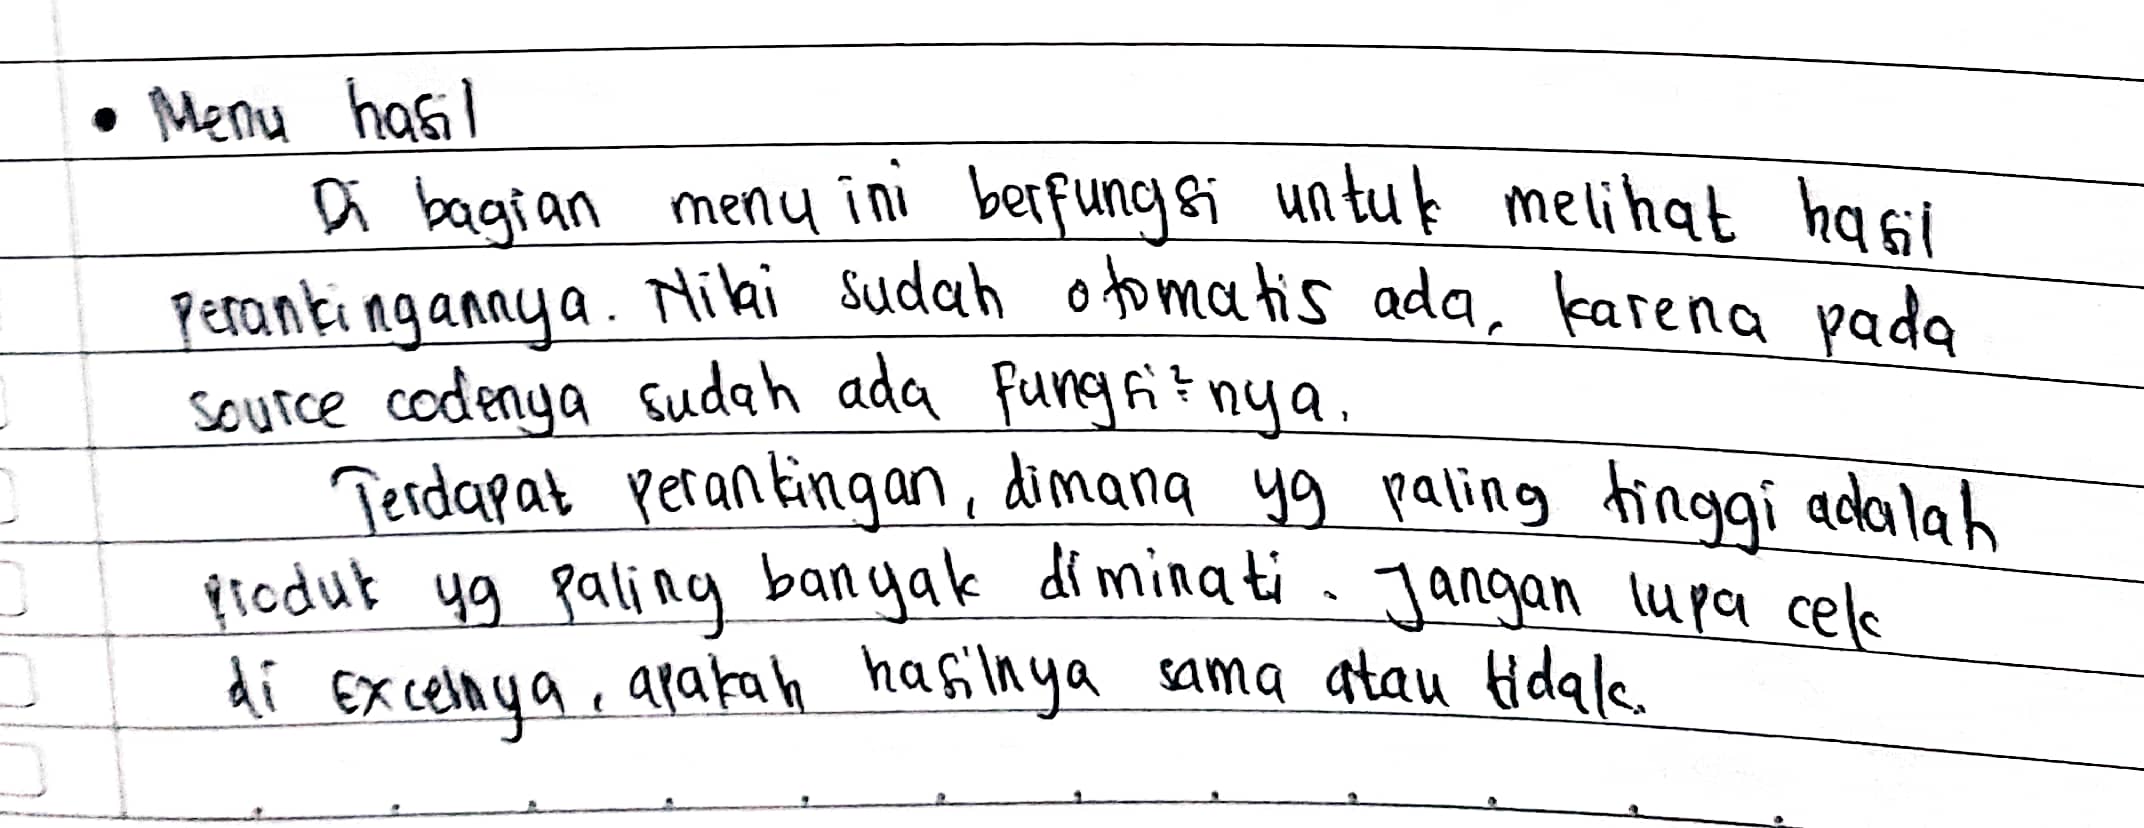 • Menu hasil
Di bagian menu ini berfungsi untuk melihat hasil
perankingannya. Nilai sudah otomatis ada, karena pada
source codenya sudah ada fungsi²nya.
Terdapat perankingan, dimana yg paling tinggi adalah
produk yg paling banyak diminati. Jangan lupa cek
di Excelnya, apakah hasilnya sama atau tidak.